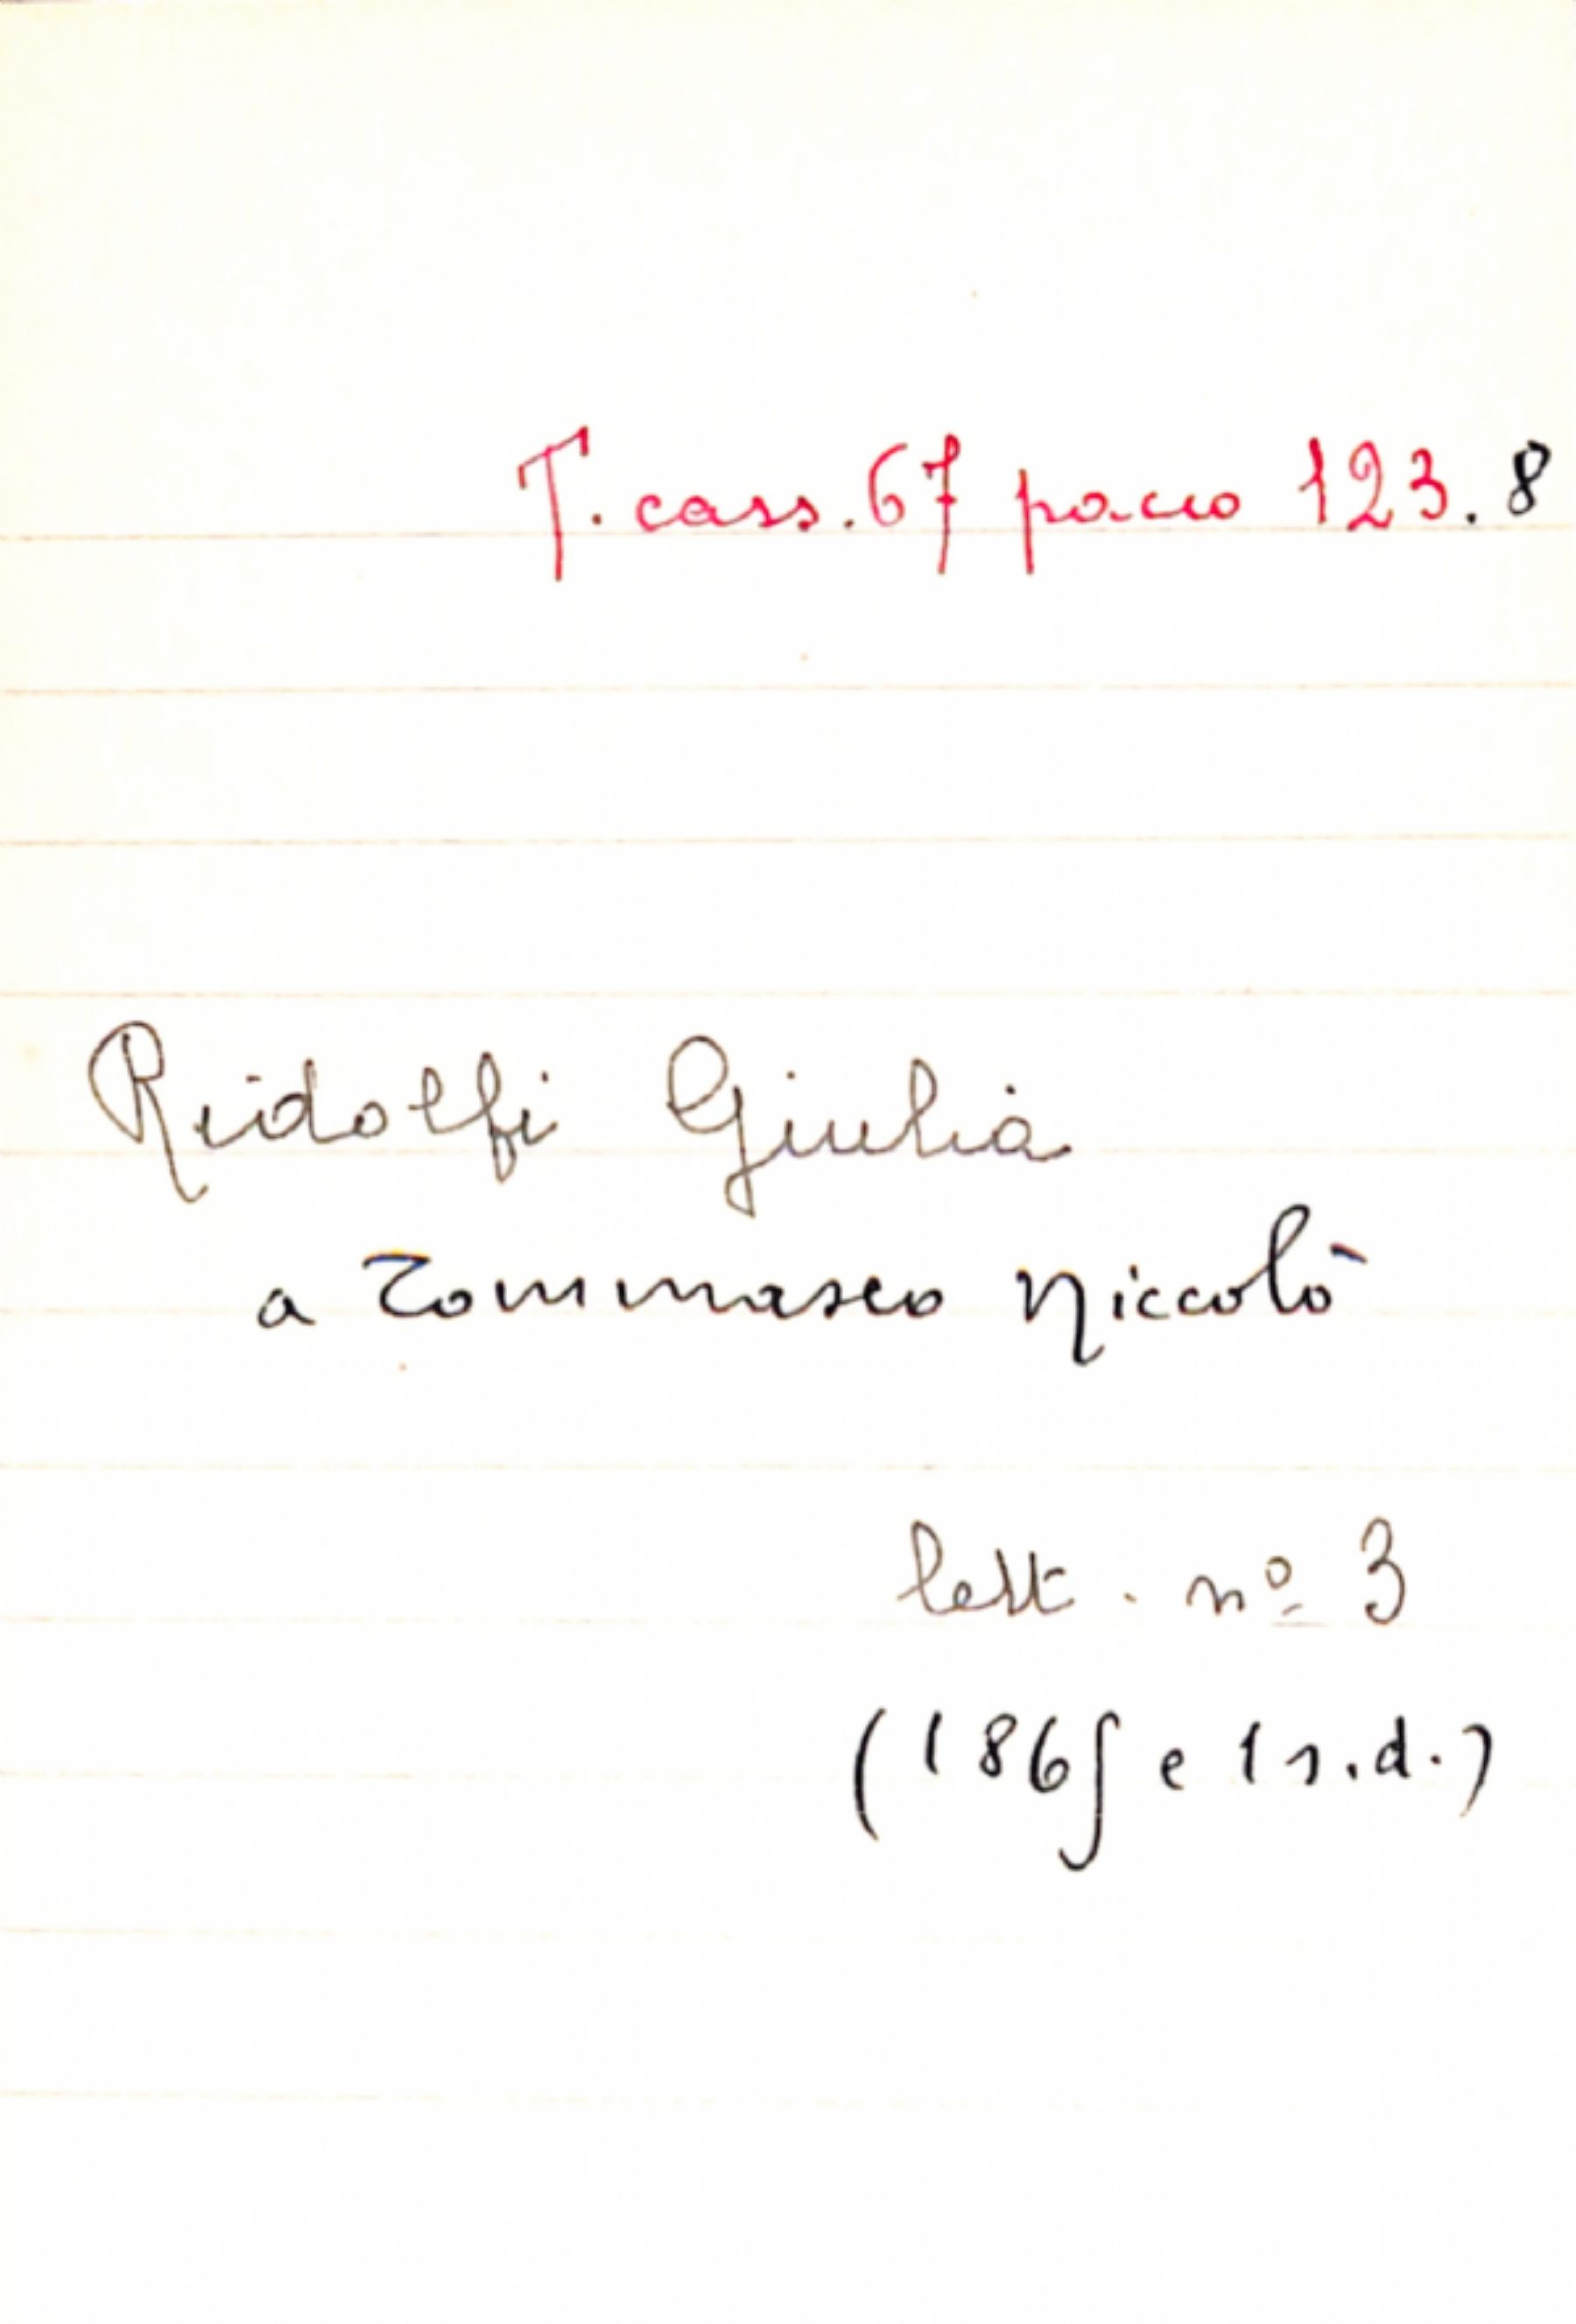 T. cass. 67 pacco 123.8
Ridolfi Giulia
a Tommaseo Niccolò
lett. nº 3
(1865 e 1 s.d.)